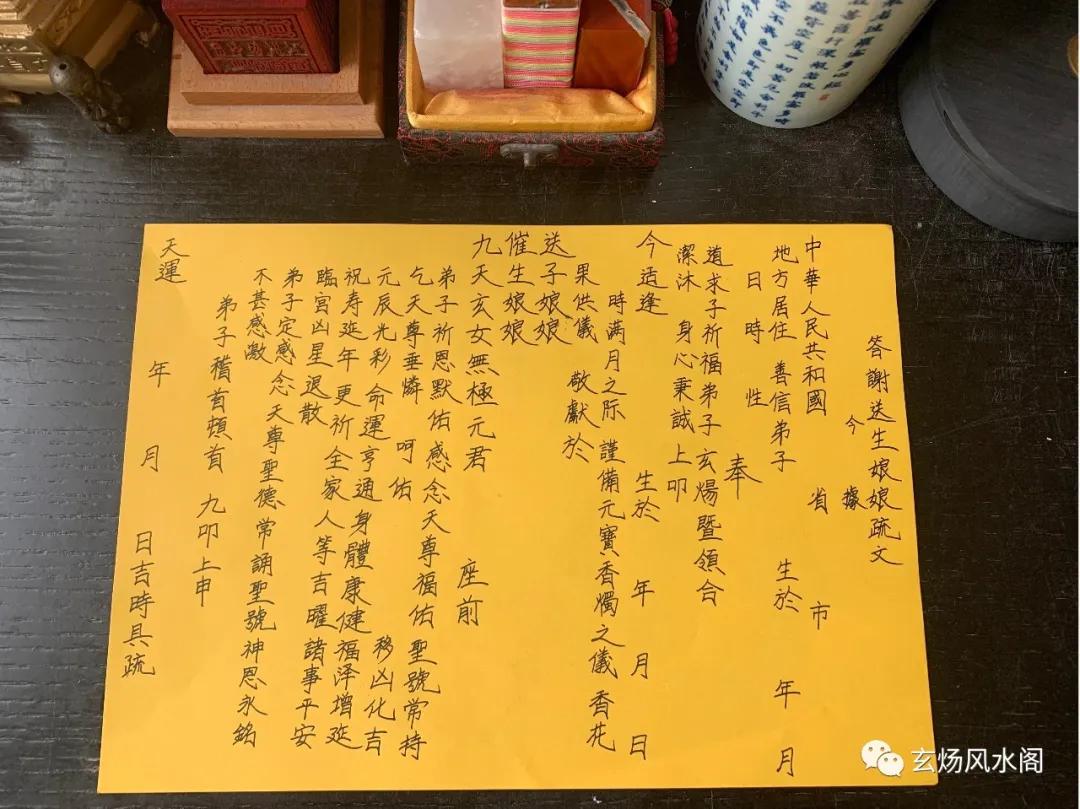 答謝送生娘娘疏文
今據
中華人民共和國 省 市
地方居住 善信弟子 生於 年 月
日 時 性 奉
道求子祈福弟子玄煬暨領合
潔沐 身心秉誠上叩
今造逢 生於 年 月 日
時满月之际 謹備元寶香燭之儀香花
果供儀 敬獻於
送子娘娘
催生娘娘
九天玄女無極元君 座前
弟子祈恩默佑感念天尊福佑聖號常持
乞天尊垂憐 呵佑 移凶化吉
元辰光彩 命運亨通身體康健福泽增延
祝寿延年 更祈全家人等吉曜諸事平安
臨宮凶星退散
弟子定感念天尊聖德常誦聖號神恩永銘
不甚感激
弟子稽首頓首 九叩上申
天運 年 月 日吉時具疏
玄炀风水阁